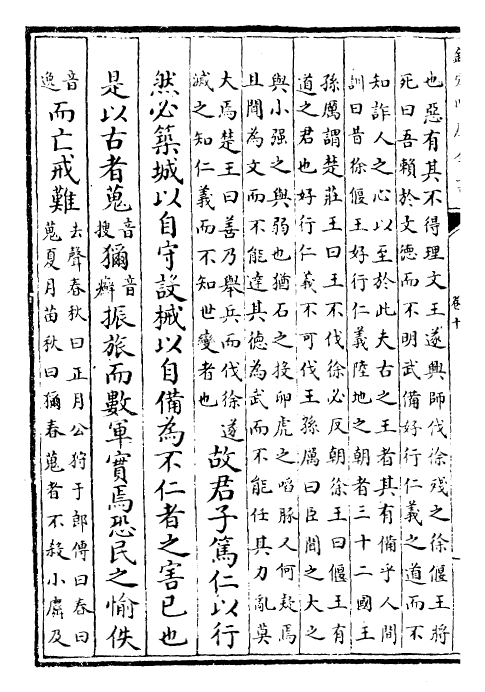 卷十
也惡有其不得理文王遂興師伐徐殘之徐偃王將
死曰吾賴於文德而不明武備好行仁義之道而不
知詐人之心以至於此夫古之王者其有備乎人間
訓曰昔徐偃王好行仁義陸地之朝者三十二國王
孫厲謂楚莊王曰王不伐徐必反朝徐王曰偃王有
道之君也好行仁義不可伐王孫厲曰臣聞之大之
與小强之與弱也猶石之投卵虎之啗豚人何疑焉
且聞為文而不能達其德為武而不能任其力亂莫
大焉楚王曰善乃舉兵而伐徐遂
滅之知仁義而不知世變者也
故君子篤仁以行
然必築城以自守設械以自備為不仁者之害已也
是以古者蒐音搜獮音癬振旅而數軍實焉恐民之愉佚
音逸而亡戒難去聲春秋曰正月公狩于郎傳曰春曰
蒐夏月苗秋曰獮春蒐者不殺小麛及